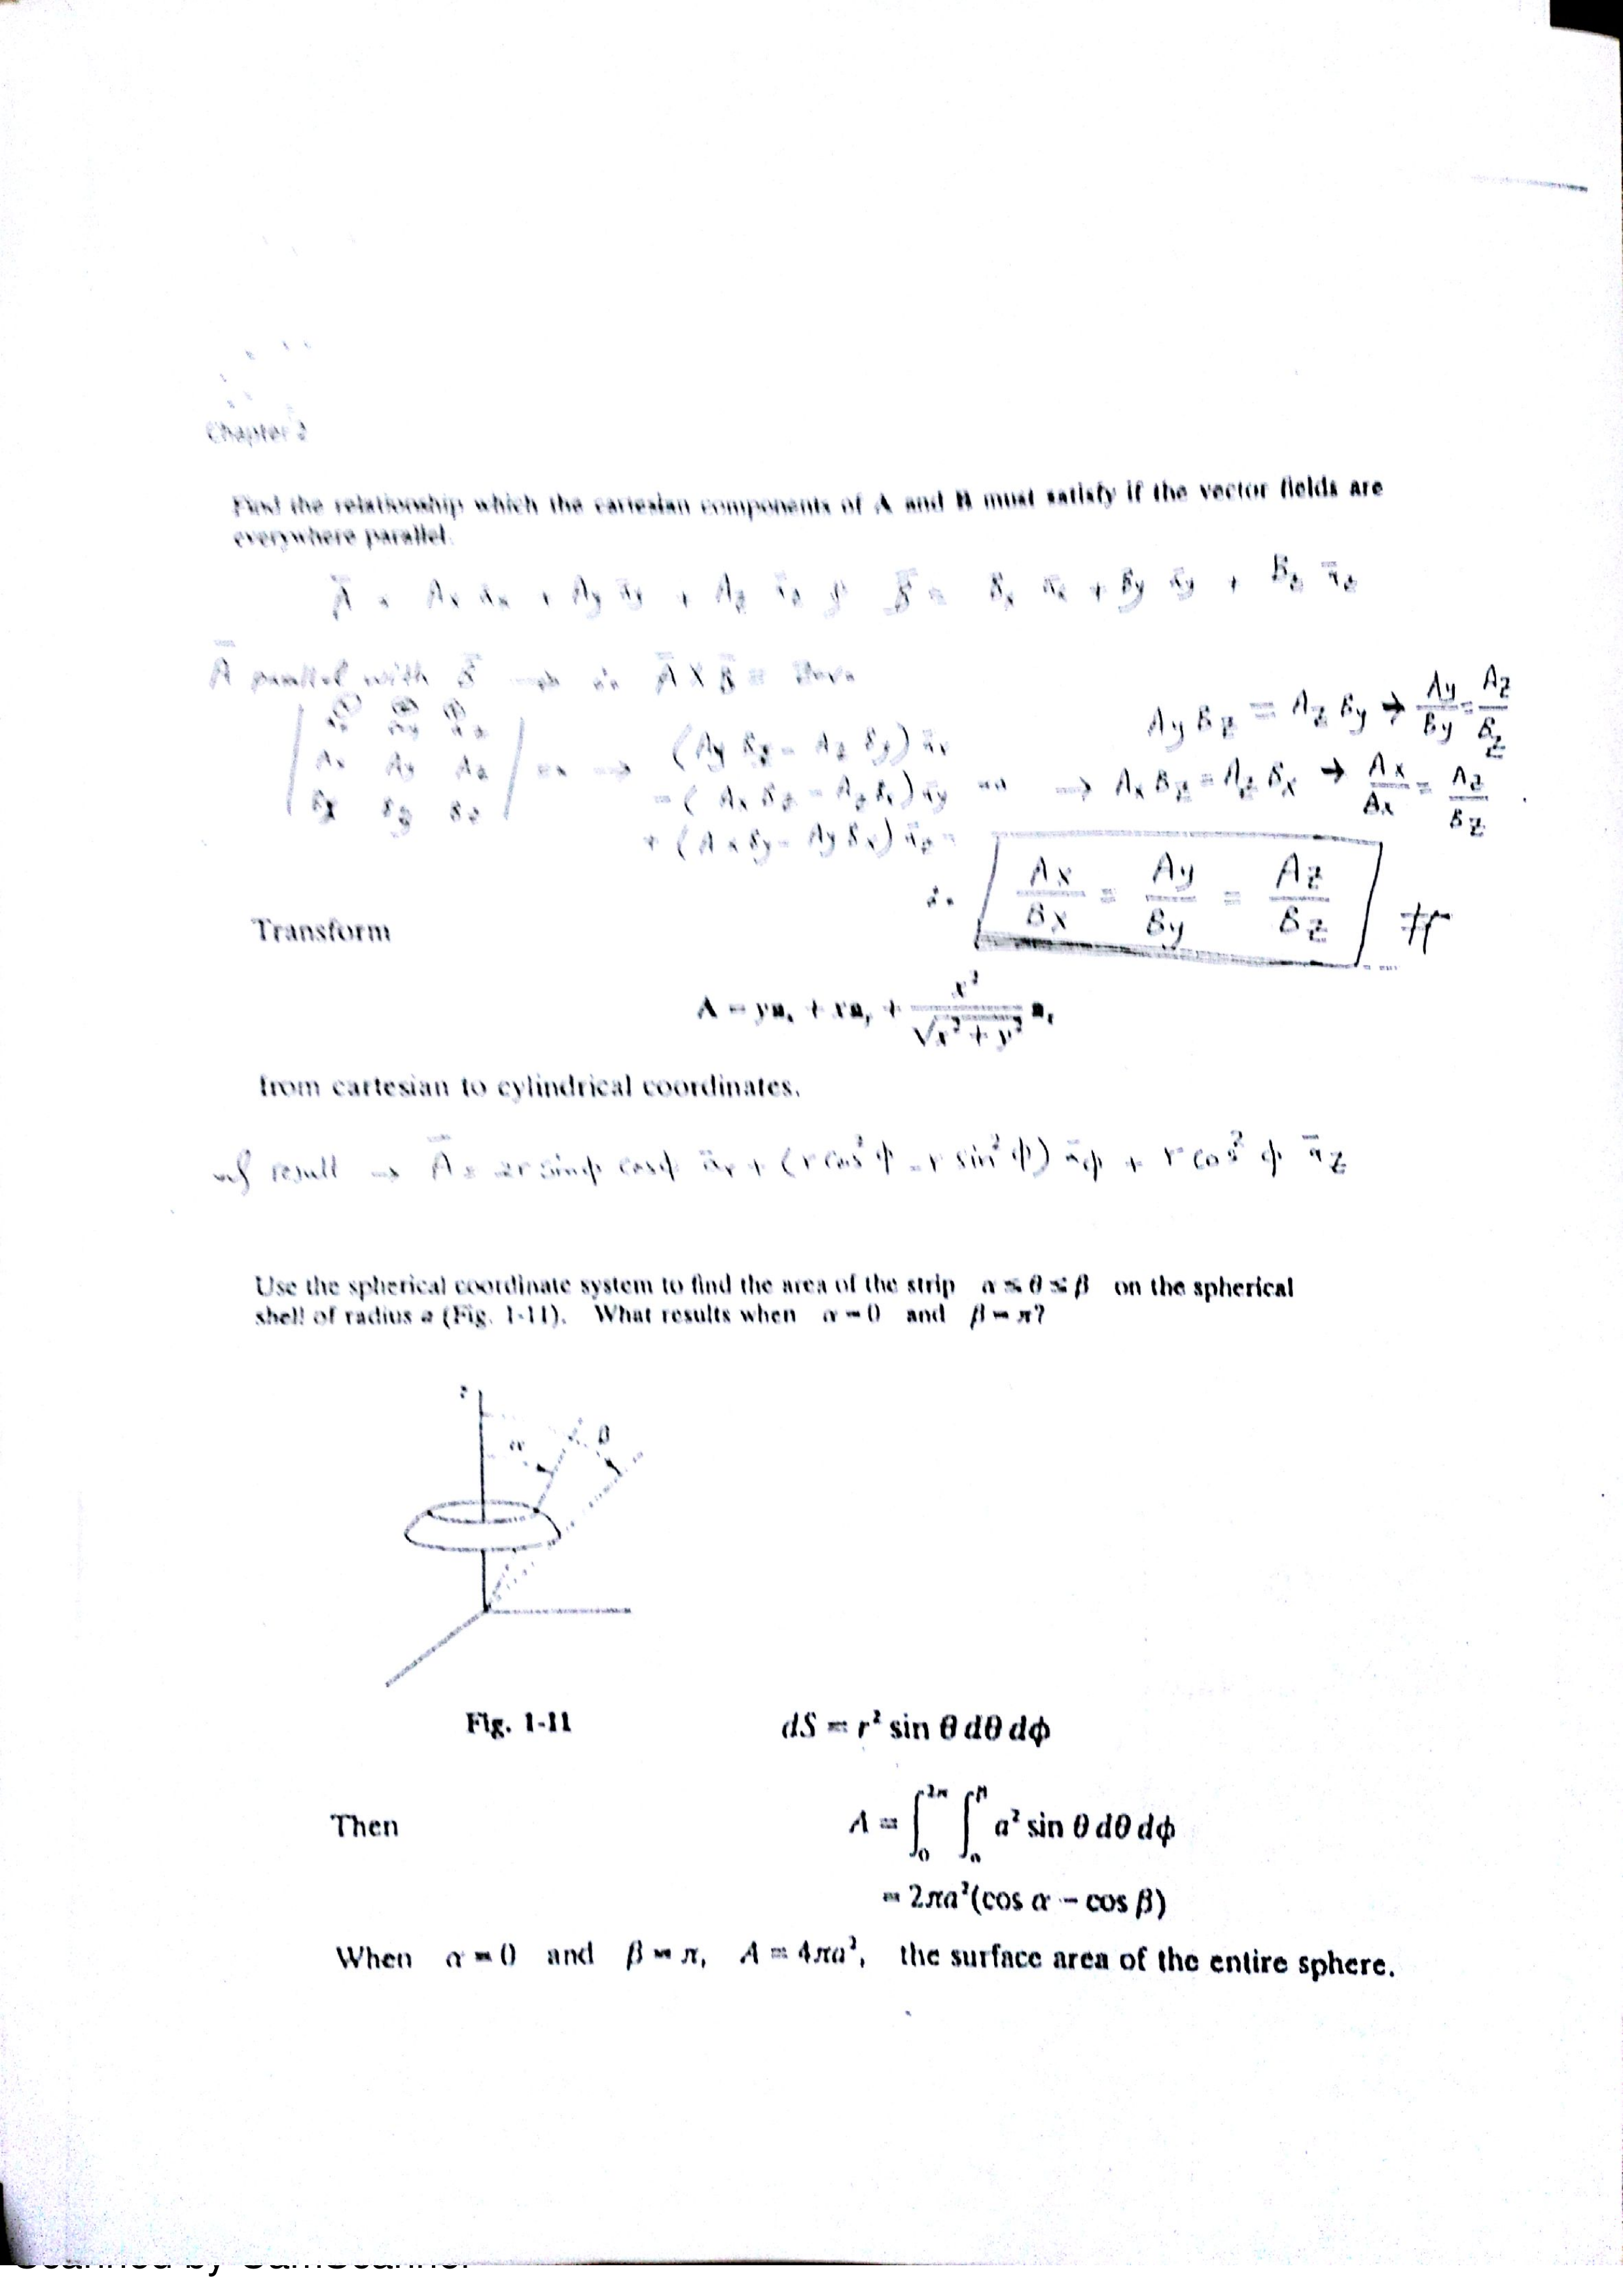 Chapter 2
Find the relationship which the cartesian components of A and B must satisfy if the vector fields are
everywhere parallel.
A̅ = Ax a̅x + Ay a̅y + Az a̅z & B̅ = Bx a̅x + By a̅y + Bz a̅z
A̅ parallel with B̅ → ∴ A̅ X B̅ = Zero
| a̅x a̅y a̅z |
| Ax Ay Az | = → (Ay Bz - Az By) a̅x
| Bx By Bz | - (Ax Bz - Az Bx) a̅y
+ (Ax By - Ay Bx) a̅z =
Ay Bz = Az By → Ay/By = Az/Bz
→ Ax Bz = Az Bx → Ax/Bx = Az/Bz
∴ Ax/Bx = Ay/By = Az/Bz #
Transform
A = yaₓ + xaᵧ + x²/√(x² + y²) a_z
from cartesian to cylindrical coordinates.
result → A̅ = 2r sinϕ cosϕ a̅r + (r cos²ϕ - r sin²ϕ) a̅ϕ + r cos²ϕ a̅z
Use the spherical coordinate system to find the area of the strip α ≤ θ ≤ β on the spherical
shell of radius a (Fig. 1-11). What results when α = 0 and β = π?
z
α β
Fig. 1-11
dS = r² sin θ dθ dϕ
Then A = ∫₀^2π ∫_α^β a² sin θ dθ dϕ
= 2πa²(cos α − cos β)
When α = 0 and β = π, A = 4πa², the surface area of the entire sphere.